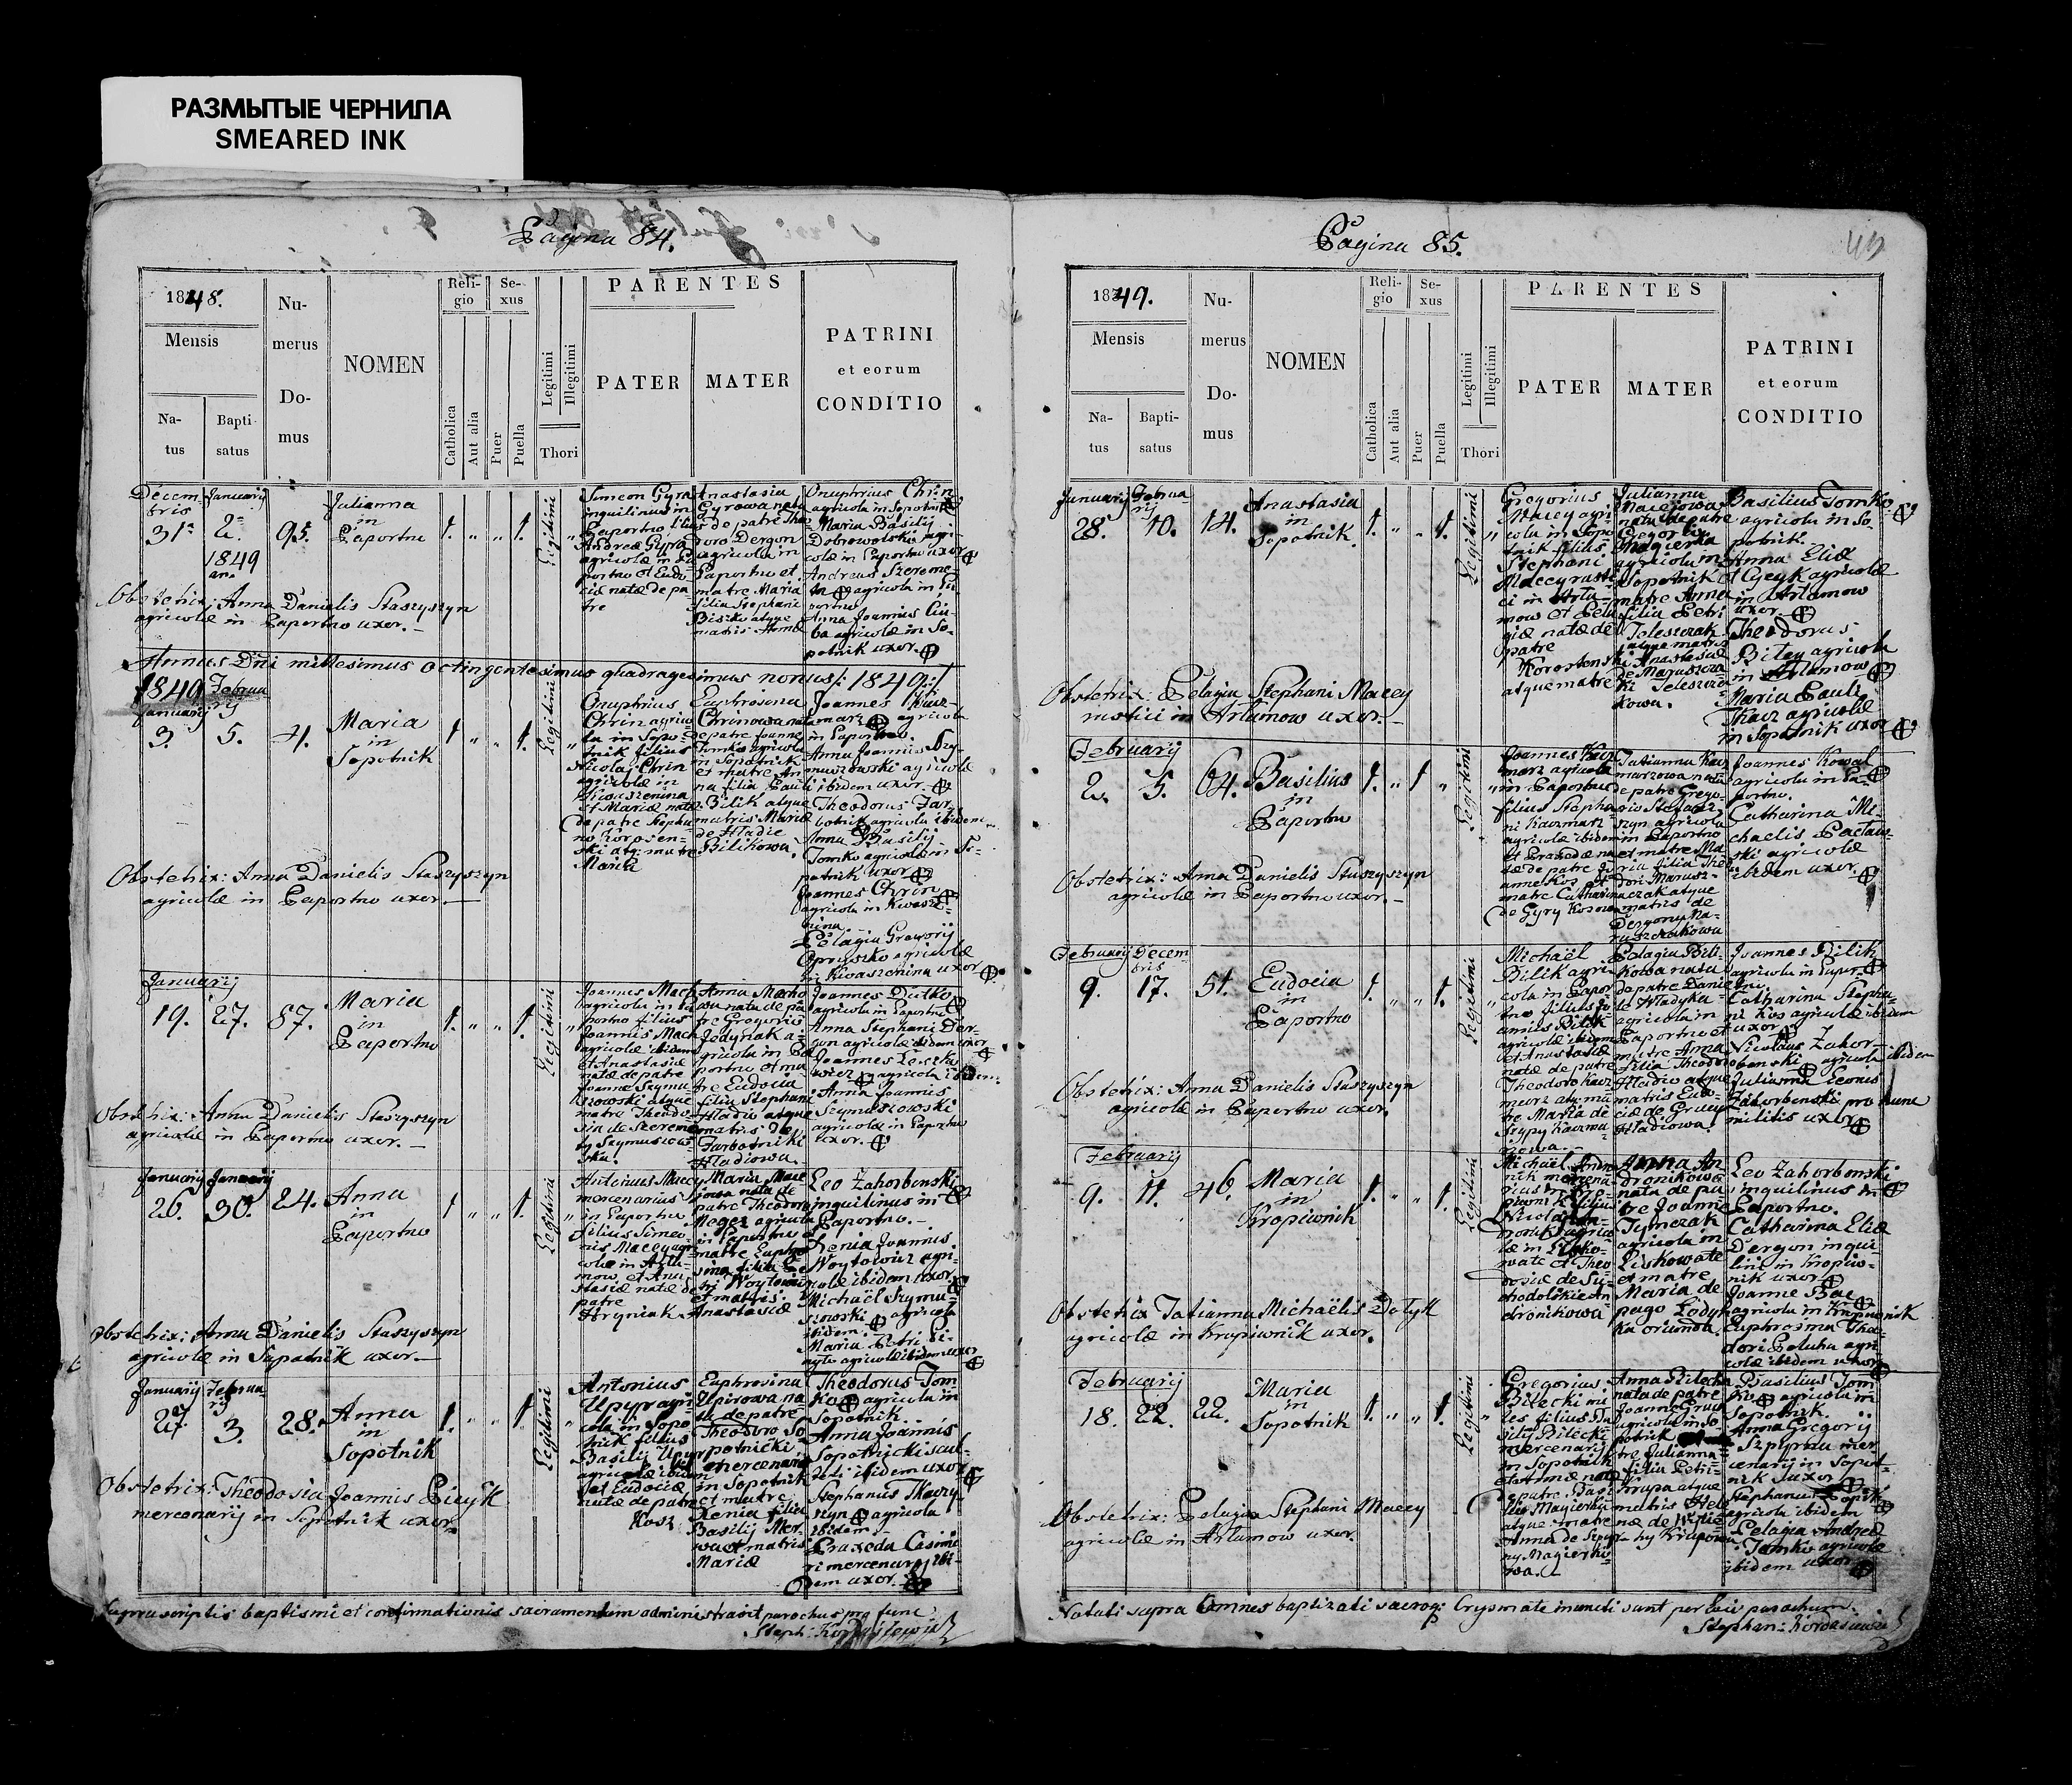 РАЗМЫТЫЕ ЧЕРНИЛА
SMEARED INK
Pagina 84.
1848.
Mensis
Na-
tus
Bapti-
satus
Nu-
merus
Do-
mus
NOMEN
Reli-
gio
Catholica
Aut alia
Se-
xus
Puer
Puella
Legitimi
Illegitimi
Thori
PARENTES
PATER
MATER
PATRINI
et eorum
CONDITIO
Decem-
bris
31
Januarij
2
1849
an.
95.
Julianna
in
Paportno
1. " " 1.
Legitimi
Simeon Gyra
inquilinus in
Paportno filius
Andreæ Gyra
agricolæ in Pa
portno et Eudo
ciæ natæ de pa
tre
Anastasia
Gyrowa nata
de patre Theo
doro Dergon
agricola in
Paportno et
matre Maria
filia Stephani
Bisko atque
matris Annæ
Onuphrius Chrin
agricola in Sopotnik
Maria Basilij
Dobrowolski agri-
colæ in Paportno uxor
Andreas Szereme-
ta agricola in Pa
portno
Anna Joannis Ciu-
ba agricolæ in So-
potnik uxor.
Obstetrix: Anna Danielis Staszyszyn
agricolæ in Paportno uxor.
Annus Dni millesimus octingentesimus quadragesimus nonus /: 1849 :/
1849
Januarij
3.
Februa
rij
5.
4.
Maria
in
Sopotnik
1 " " 1.
Legitimi
Onuphrius
Chrin agrico
la in Sopo-
tnik filius
Nicolaj Chrin
agricolæ in
Kwaszenina
et Mariæ natæ
de patre Stepha
no Korosten-
ski atq: matre
Maria
Euphrosina
Chrinowa nata
de patre Joanne
Tomko agricola
in Sopotnik
et matre An
na filia Pauli
Bilik atque
matris Mariæ
de Hladie
Bilikowa.
Joannes Kacz-
marz agricola
in Paportno.
Anna Joannis Szy-
muszowski agricolæ
ibidem uxor.
Theodorus Jar
botnik agricola ibidem
Anna Basilij
Tomko agricolæ in So-
potnik uxor
Joannes Chrin
agricola in Kwasz-
nina.
Pelagia Grewory
Opryszko agricolæ
in Kwaszenina uxor
Obstetrix: Anna Danielis Staszyszyn
agricolæ in Paportno uxor.
Januarij
19. 27. 87.
Maria
in
Paportno
1. " " 1.
Legitimi
Joannes Mach
agricola in Pa
portno filius
Joannis Mach
agricolæ ibidem
et Anastasiæ
natæ de patre
Joanne Szymu
szowski atque
matre Theodo-
sia de Szereme
ty Szymuszow-
ska.
Anna Macho
wa nata de pa
tre Gregorio
Jedynak a-
gricola in Pa
portno et ma
tre Eudocia
filia Stephani
Hladio atque
matris de
Jarbotniki
Hladiowa.
Joannes Dutko
agricola in Paportno
Anna Stephani Der-
gon agricolæ ibidem uxor
Joannes Leszko
wicz agricola ibidem.
Anna Joannis
Szymuszowski
agricolæ in Paportno
uxor.
Obstetrix: Anna Danielis Staszyszyn
agricolæ in Paportno uxor.
Januarij Januarij
26. 30. 24.
Anna
in
Paportno
1 " " 1.
Legitimi
Antonius Macey
mercenarius
in Paportno
filius Simeo-
nis Macey agri
colæ in Arta-
mow et Ana
stasiæ natæ de
patre
Hryniak
Maria Mace
jowa nata de
patre Theodoro
Meger agricola
in Paportno et
matre Euphro
sina filia Pe
tri Woytowicz
et matris.
Anastasiæ
Leo Zahorbenski
inquilinus in
Paportno.
Xenia Joannis
Woytowicz agri-
colæ ibidem uxor.
Michaël Szymu-
szowski agricola
ibidem.
Maria Petri Pi-
ayto agricolæ ibidem uxor
Obstetrix: Anna Danielis Staszyszyn
agricolæ in Sopotnik uxor.
Januarij
27
Februa
rij
3.
28.
Anna
in
Sopotnik
1. " " 1
Legitimi
Antonius
Upyr agri-
cola in Sopo
tnik filius
Basilij Upyr
agricolæ ibidem
et Eudociæ
natæ de patre
Kosz
Euphrosina
Upirowa na
ta de patre
Theodoro So-
potnicki
mercenario
in Sopotnik
et matre
Xenia filia
Basilij Mer-
wa et matris
Mariæ
Theodorus Tom
ko agricola in
Sopotnik.
Anna Joannis
Sopotnicki scul-
teti ibidem uxor.
Stephanus Tkaczy-
szyn agricola
ibidem
Praxeda Casimi
ri mercenarij ibi-
dem uxor.
Obstetrix: Theodosia Joannis Picyk
mercenarij in Sopotnik uxor.
Supra scriptis baptismi et confirmationis sacramentum administravit parochus pro tunc
Steph: Kordasiewicz
Pagina 85.
1849.
Mensis
Na-
tus
Bapti-
satus
Nu-
merus
Do-
mus
NOMEN
Reli-
gio
Catholica
Aut alia
Se-
xus
Puer
Puella
Legitimi
Illegitimi
Thori
PARENTES
PATER
MATER
PATRINI
et eorum
CONDITIO
Januarij
28.
Februa
rij
10.
14.
Anastasia
in
Sopotnik.
1. " " 1.
Legitimi
Gregorius
Macey agri-
cola in Sopo
tnik filius
Stephani
Macey rusti
ci in Arta-
mow et Pela
giæ natæ de
patre
Korostenski
atque matre
Julianna
Macejowa
nata de patre
Gregorio
Magierka
agricola in
Sopotnik et
matre Anna
filia Petri
Teleszczak
atque matris
Anastasiæ
de Maruszcza
ki Teleszcza
kowa.
Basilius Tomko
agricola in So-
potnik.
Anna Eliæ
Cycyk agricolæ
in Artamow
uxor.
Theodorus
Biten agricola
in Artamow
Maria Pauli
Tkacz agricolæ
in Sopotnik uxor
Obstetrix: Pelagia Stephani Macey
rustici in Artamow uxor.
Februarij
2. 5. 64.
Basilius
in
Paportno
1. " 1 "
Legitimi
Joannes Kacz
marz agricola
in Paportno
filius Stepha-
ni Kaczmarz
agricolæ ibidem
et Praxedæ na
tæ de patre Jo
anne Kos et
matre Catharina
de Gyry Kosowa
Tatianna Kacz
marzowa nata
de patre Grego-
rio Stefasz-
szyn agricola
in Paportno
et matre Ma
ria filia The
dori Marusz-
czak atque
matris de
Dergony Ma-
ruszczakowa
Joannes Kowal
agricola in Pa-
portno.
Catharina Mi-
chaelis Pactaw-
ski agricolæ
ibidem uxor.
Obstetrix: Anna Danielis Staszyszyn
agricolæ in Paportno uxor.
Februarij
9.
Decem
bris
17.
51.
Eudocia
in
Paportno
1. " " 1.
Legitimi
Michaël
Bilik agri-
cola in Papor
tno filius Jo
annis Bilik
agricolæ ibidem
et Anastasiæ
natæ de patre
Theodoro Kacz
marz atq: ma
tre Maria de
Szypy Kaczma-
rowa.
Pelagia Bili-
kowa nata
de patre Danie
le Hladyka-
agricola in
Paportno et
matre Anna
filia Theodori
Hladio atque
matris Eudo
ciæ de Gruey
Hladiowa.
Joannes Bilik
agricola in Papor-
tni.
Catharina Stepha-
ni Kos agricolæ ibidem
uxor
Nicolaus Zahor-
benski agricola ibidem
Julianna Leonis
Zahorbenski pro tunc
militis uxor
Obstetrix: Anna Danielis Staszyszyn
agricolæ in Paportno uxor.
Februarij
9. 11. 46.
Maria
in
Kropiwnik
1. " " 1.
Legitimi
Michaël Andro
nik mercena-
rius in Kro-
piwnik filius
Nicolai An-
dronik agrico
læ in Lisko-
wate et Theo
dosiæ de Su-
chodolskie An
dronikowa
Anna An
dronikowa
nata de pa-
tre Joanne
Tymczak
agricola in
Liskowate
et matre
Maria de
pago Lodyn
ka oriunda.
Leo Zahorbenski
inquilinus in
Paportno.
Catharina Eliæ
Dergon inqui-
lini in Kropiw-
nik uxor
Joannes Bac
agricola in Kropiwnik
Euphrosina Theo-
dori Petuha agri-
colæ ibidem uxor
Obstetrix Tatianna Michaëlis Dotyk
agricolæ in Kropiwnik uxor.
Februarij
18. 22. 22.
Maria
in
Sopotnik
1. " " 1.
Legitimi
Gregorius
Bilecki mi
les filius Ba
silij Bilecki
mercenarij
in Sopotnik
et Annæ natæ
de patre Basi
lio Magierka
atque matre
Anna de Szpyr
ny Magierko
wa.
Anna Bilecka
nata de patre
Joanne Krupa
agricola in So
potnik
tre Julianna
filia Petri
Krupa atque
matris Hele
næ de
ny Krupowa
Basilius Tom
ko agricola in
Sopotnik.
Anna Gregorij
Szpyrna mer
cenarij in Sopot-
nik uxor
Stephanus
agricola ibidem
Pelagia Andreæ
Tomko agricolæ
ibidem uxor
Obstetrix: Pelagia Stephani Macey
agricolæ in Artamow uxor.
Notati supra Omnes baptizati sacroq: Crysmate inuncti sunt per Loci parochum.
Stephan: Kordasiewicz